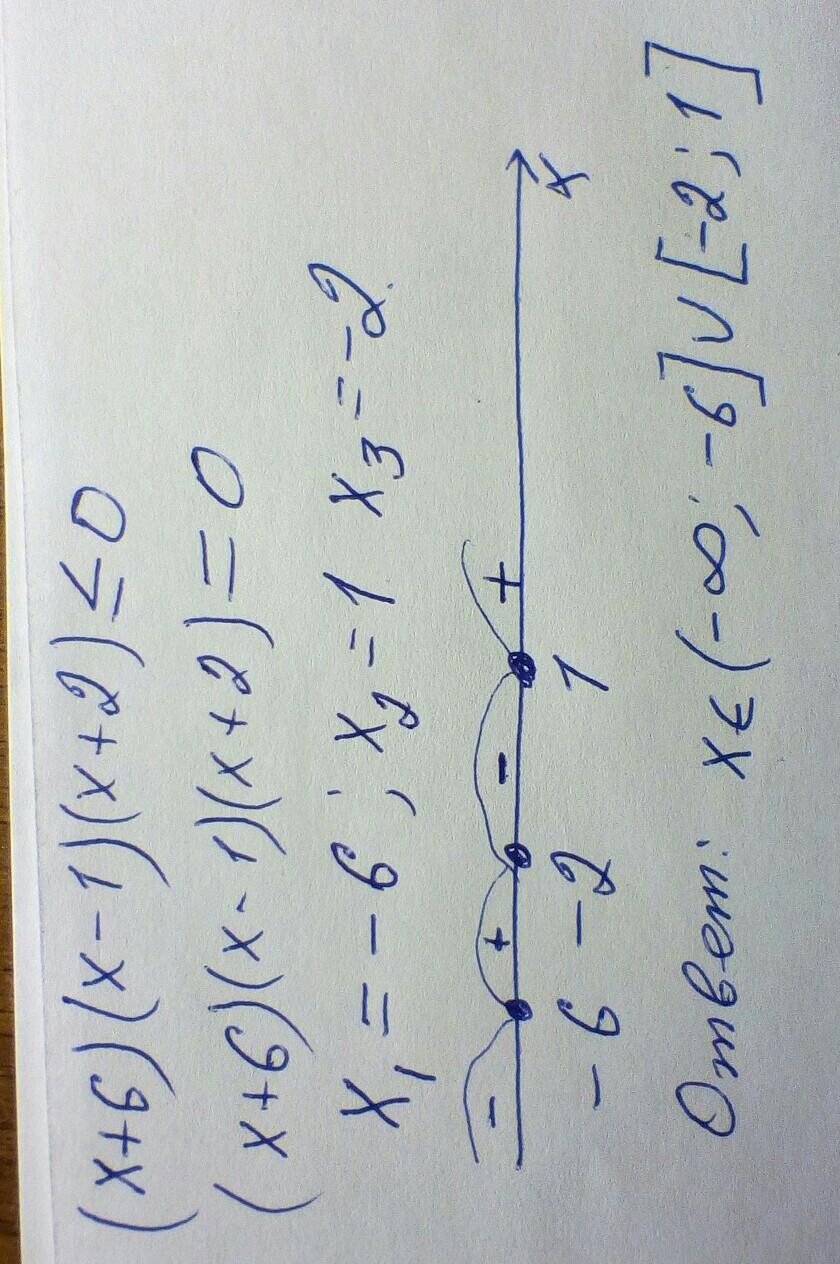 (x+6)(x-1)(x+2)≤0
(x+6)(x-1)(x+2)=0
x₁=-6; x₂=1 x₃=-2
- + - +
-6 -2 1 x
Ответ: x∈(-∞;-6]∪[-2;1]